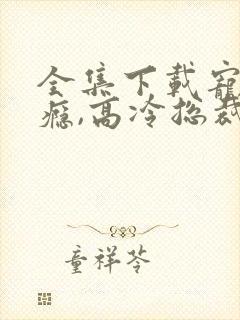 全集下载宠
瘾,高冷总裁
童祥苓